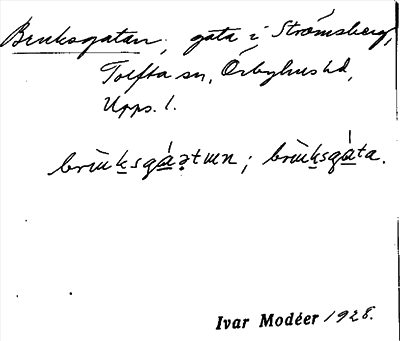 Bruksgatan, gata i Strömsberg,
Tolfta sn, Örbyhus hd,
Upps. l.
brùksgáətɯn; brùksgáta.
Ivar Modéer 1928.